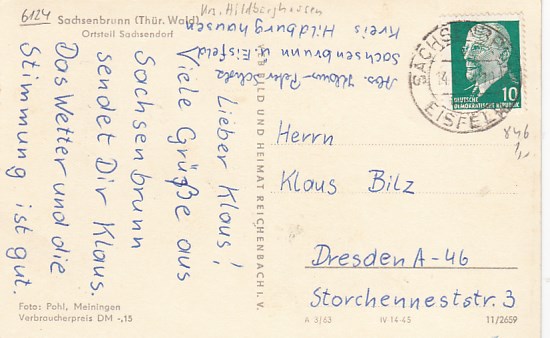 6124
Kr. Hildburghausen
Sachsenbrunn (Thür. Wald)
Ortsteil Sachsendorf
Abs. Klaus-Peter Scholz
Sachsenbrunn ü. Eisfeld
Kreis Hildburghausen
Lieber Klaus!
Viele Grüße aus
Sachsenbrunn
sendet Dir Klaus.
Das Wetter und die
Stimmung ist gut.
Foto: Pohl, Meiningen
Verbraucherpreis DM -,15
BILD UND HEIMAT REICHENBACH I. V.
DEUTSCHE
DEMOKRATISCHE REPUBLIK
10
14
EISFELD
846
1,-
Herrn
Klaus Bilz
Dresden A-46
Storchenneststr. 3
A 5/63 IV-14-45 11/2659